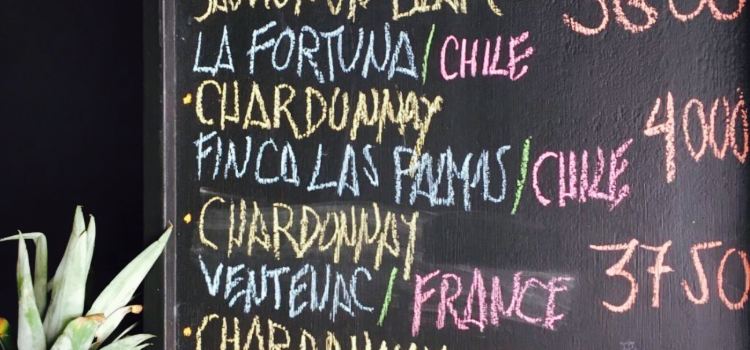 SAUVIGNON BLANC 3600
LA FORTUNA/CHILE
• CHARDONNAY 4000
FINCA LAS PALMAS/CHILE
• CHARDONNAY 3750
VENTENAC/FRANCE
• CHARDONNAY